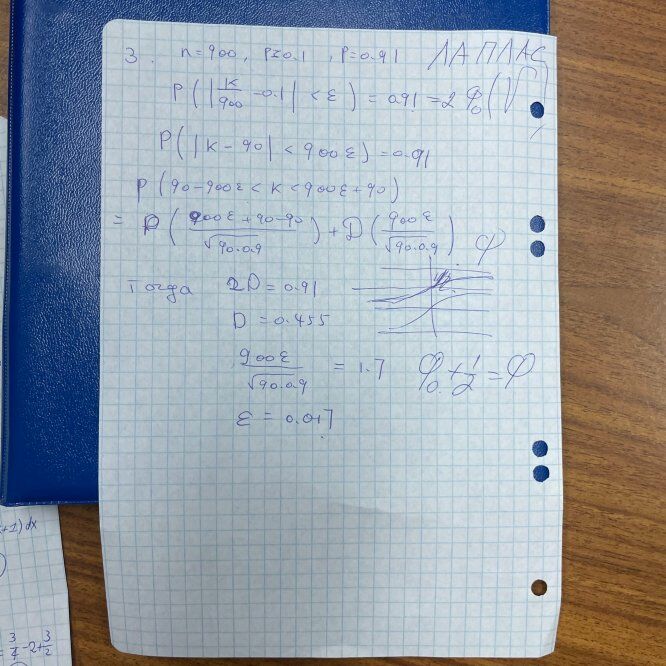 3. n=900, p=0.1, P=0.91 ЛАПЛАС
P(|k/900 - 0.1| < ε) = 0.91 = 2 φ₀(√
P(|k - 90| < 900ε) = 0.91
P(90-900ε < k < 900ε+90)
= P((900ε+90-90)/√(90·0.9)) + D(900ε/√(90·0.9)) φ
Тогда 2D = 0.91
D = 0.455
900ε/√(90·0.9) = 1.7 φ₀ + 1/2 = φ
ε = 0.017
+1)dx
= 3/4 - 2 + 3/2